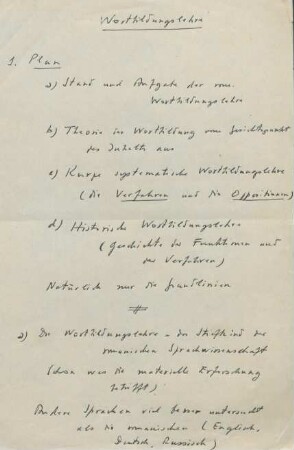 Wortbildungslehre
1. Plan
a) Stand und Aufgabe der rom.
Wortbildungslehre
b) Theorie der Wortbildung vom Gesichtspunkt
des Inhalts aus
c) Kurze systematische Wortbildungslehre
(die Verfahren und die Oppositionen)
d) Historische Wortbildungslehre
(Geschichte der Funktionen und
der Verfahren)
Natürlich nur die Grundlinien
2) Die Wortbildungslehre - das Stiefkind der
romanischen Sprachwissenschaft
(schon was die materielle Erforschung
betrifft)
Andere Sprachen viel besser untersucht
als die romanischen (Englisch,
Deutsch, Russisch)